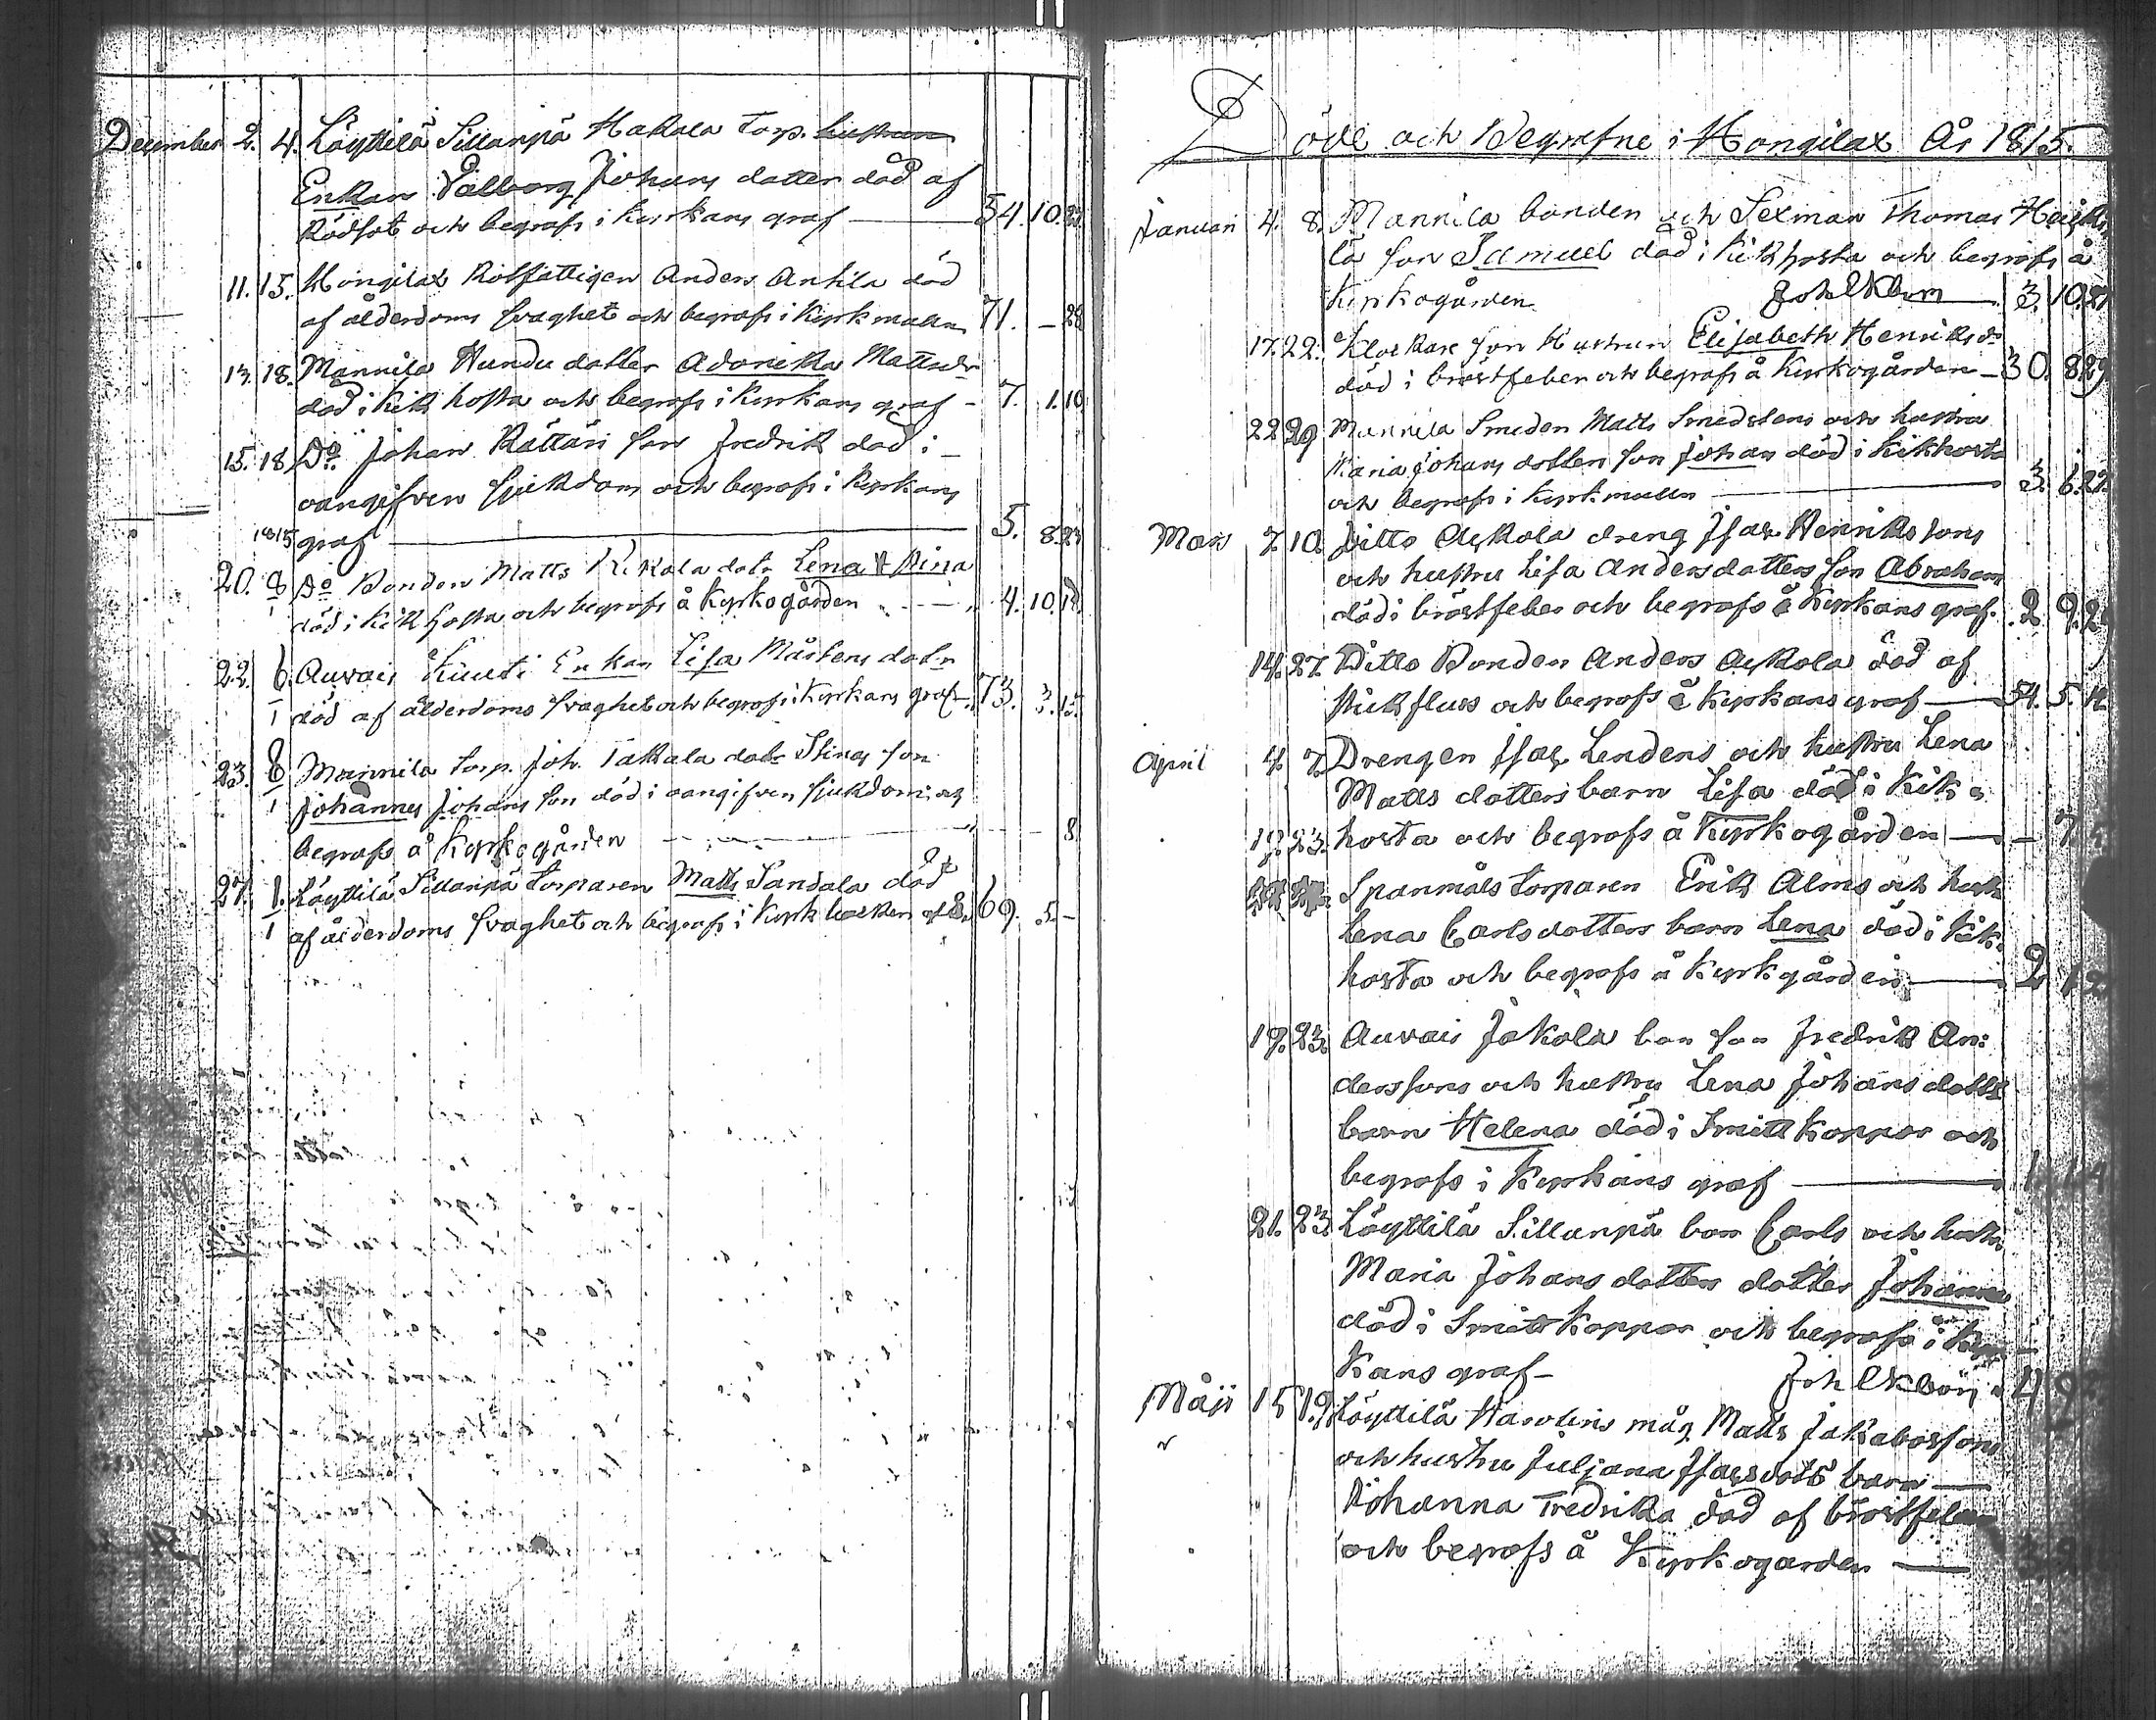 December 2. 4. Löyttilä Sillanpä Hakala Torp. hustrun
Enkan Valborg Johans dotter död af
Rödsot och begrafs i Kyrkans graf — 54. 10. 23
11. 15. Hongilax Rotfattigen Anders Anttila död
af ålderdoms svaghet och begrafs i Kyrkmullen 71. – 28
13. 18. Mannila Hundu dotter Adorieka Mattsdr
död i Kik hosta och begrafs i Kyrkans graf - 7. 1. 10
15. 18. Do Johan Rättäri son Fredrik död i
oangifven sjukdom och begrafs i Kyrkans
1815 graf — 5. 8. 23
20. 8/1 Do Bonden Matts Rekola dotr Lena Stina
död i Kik hosta och begrafs å Kyrkogården — 4. 10. 18.
22. 6/1 Auvais Knuuti Enkan Lisa Mårtens dotr
död af ålderdoms svaghet och begrafs i Kyrkans graf - 73. 3. 15.
23. 8/1 Mannila Torp. Joh. Takala dotr Stinas son
Johannes Johans son död i oangifven sjukdom och
begrafs å Kyrkogården — 8
27. 1/1 Löyttilä Sillanpä Torparen Matts Sandala död
af ålderdoms svaghet och begrafs i Kyrk backen 69. 5. –
Döde och Begrafne i Hongilax År 1815.
Januari 4. 8. Mannila bonden och Sexman Thomas Heiki
lä son Samuel död i Kikhosta och begrafs å
Kyrkogården Joh Ekbom 3. 10. 27
17. 22. Klockare son Hustrun Elisabeth Henriksdr
död i bröstfeber och begrafs å Kyrkogården — 30. 8. 29
22 29 Mannila Smeden Matts Smedstens och hustru
Maria Johans dotters son Johan död i Kikhosta
och begrafs i Kyrk mullen — 3. 6. 27.
Mars 7. 10. Ditto Äykola dreng Isac Henriks sons
och hustru Lisa Andersdotters son Abraham
död i bröstfeber och begrafs å Kyrkans graf. 2 9. 29
14. 27. Ditto Bonden Anders Äykola död af
stickfluss och begrafs å Kyrkans graf — 54. 5. 12
April 4. 7. Drengen Isac Lendens och hustru Lena
Matts dotters barn Lisa död i Kik
19. 23. hosta och begrafs å Kyrkogården — – 7
Spanmåls Torparen Erik Alms och hustr
Lena Carlsdotters barn Lena död i Kik
hosta och begrafs å Kyrkgården — 2 1 2
19. 23. Auvais Jakola bon son Fredrik An:
derssons och hustru Lena Johans dotters
barn Helena död i Smitt Koppor och
begrafs i Kyrkans graf —
21. 23. Löyttilä Sillanpä bon Carls och hustru
Maria Johans dotters dotter Johanna
död i Smitt Koppor och begrafs i Kyr
Kans graf – Joh Ekbom 4 9
Maji 15 19. Löyttilä Harolins måg Matts Jakabossons
och hustru Juljana Isacs dotr barn —
Johanna Fredrika död af bröstfeber
och begrafs å Kyrkogården —